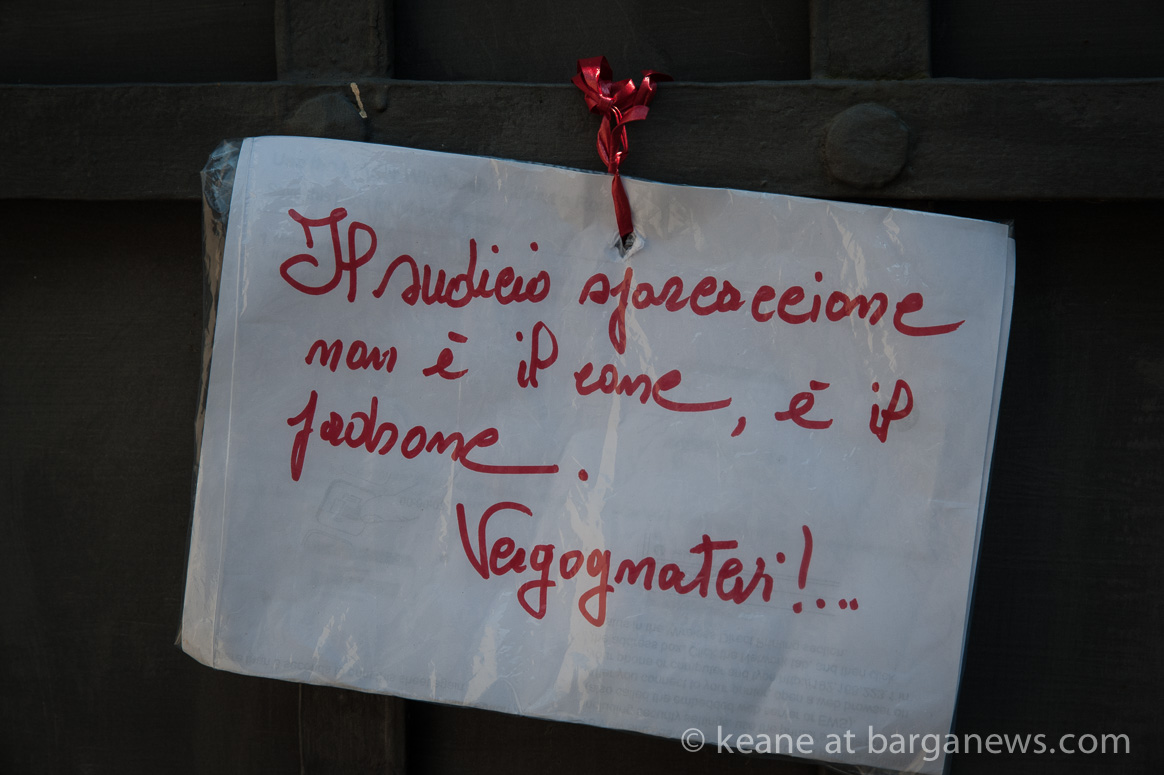 Il sudicio sporcaccione
non è il cane, è il
padrone.
Vergognatevi!...
© keane at barganews.com